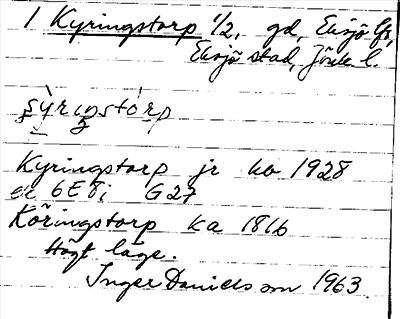 1 Kyringstorp 1/2, gd, Eksjö lfs,
Eksjö stad, Jönk. l.
şỳrıŋstórp
Kyringstorp jr ko 1928
ek 6E 8i G27
Köringstorp ka 1816
Högt läge.
Inger Danielsson 1963